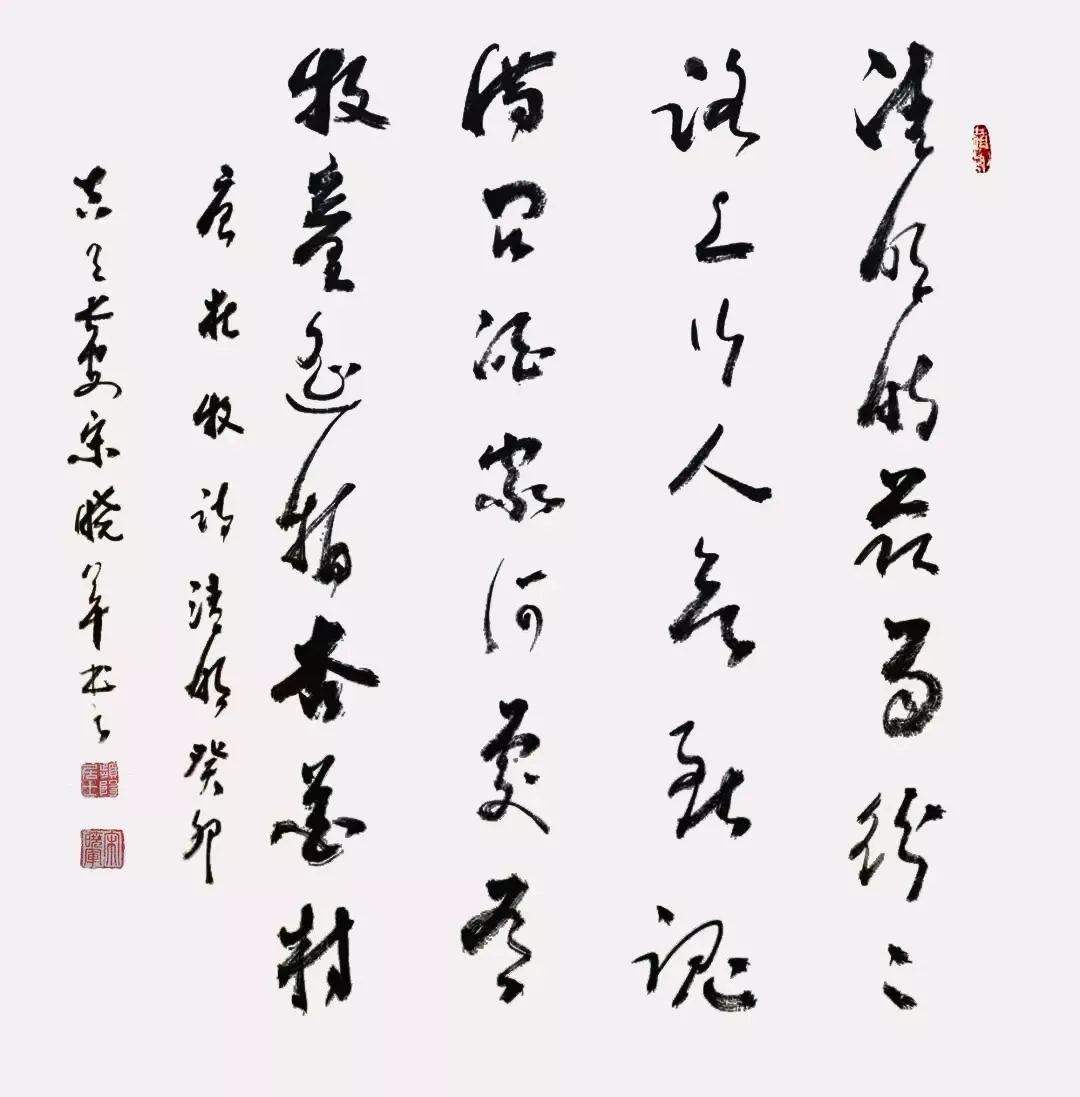 清明时节雨纷〻
路上行人欲断魂
借问酒家何处有
牧童遥指杏花村
唐杜牧诗清明癸卯
长安宋晓军书